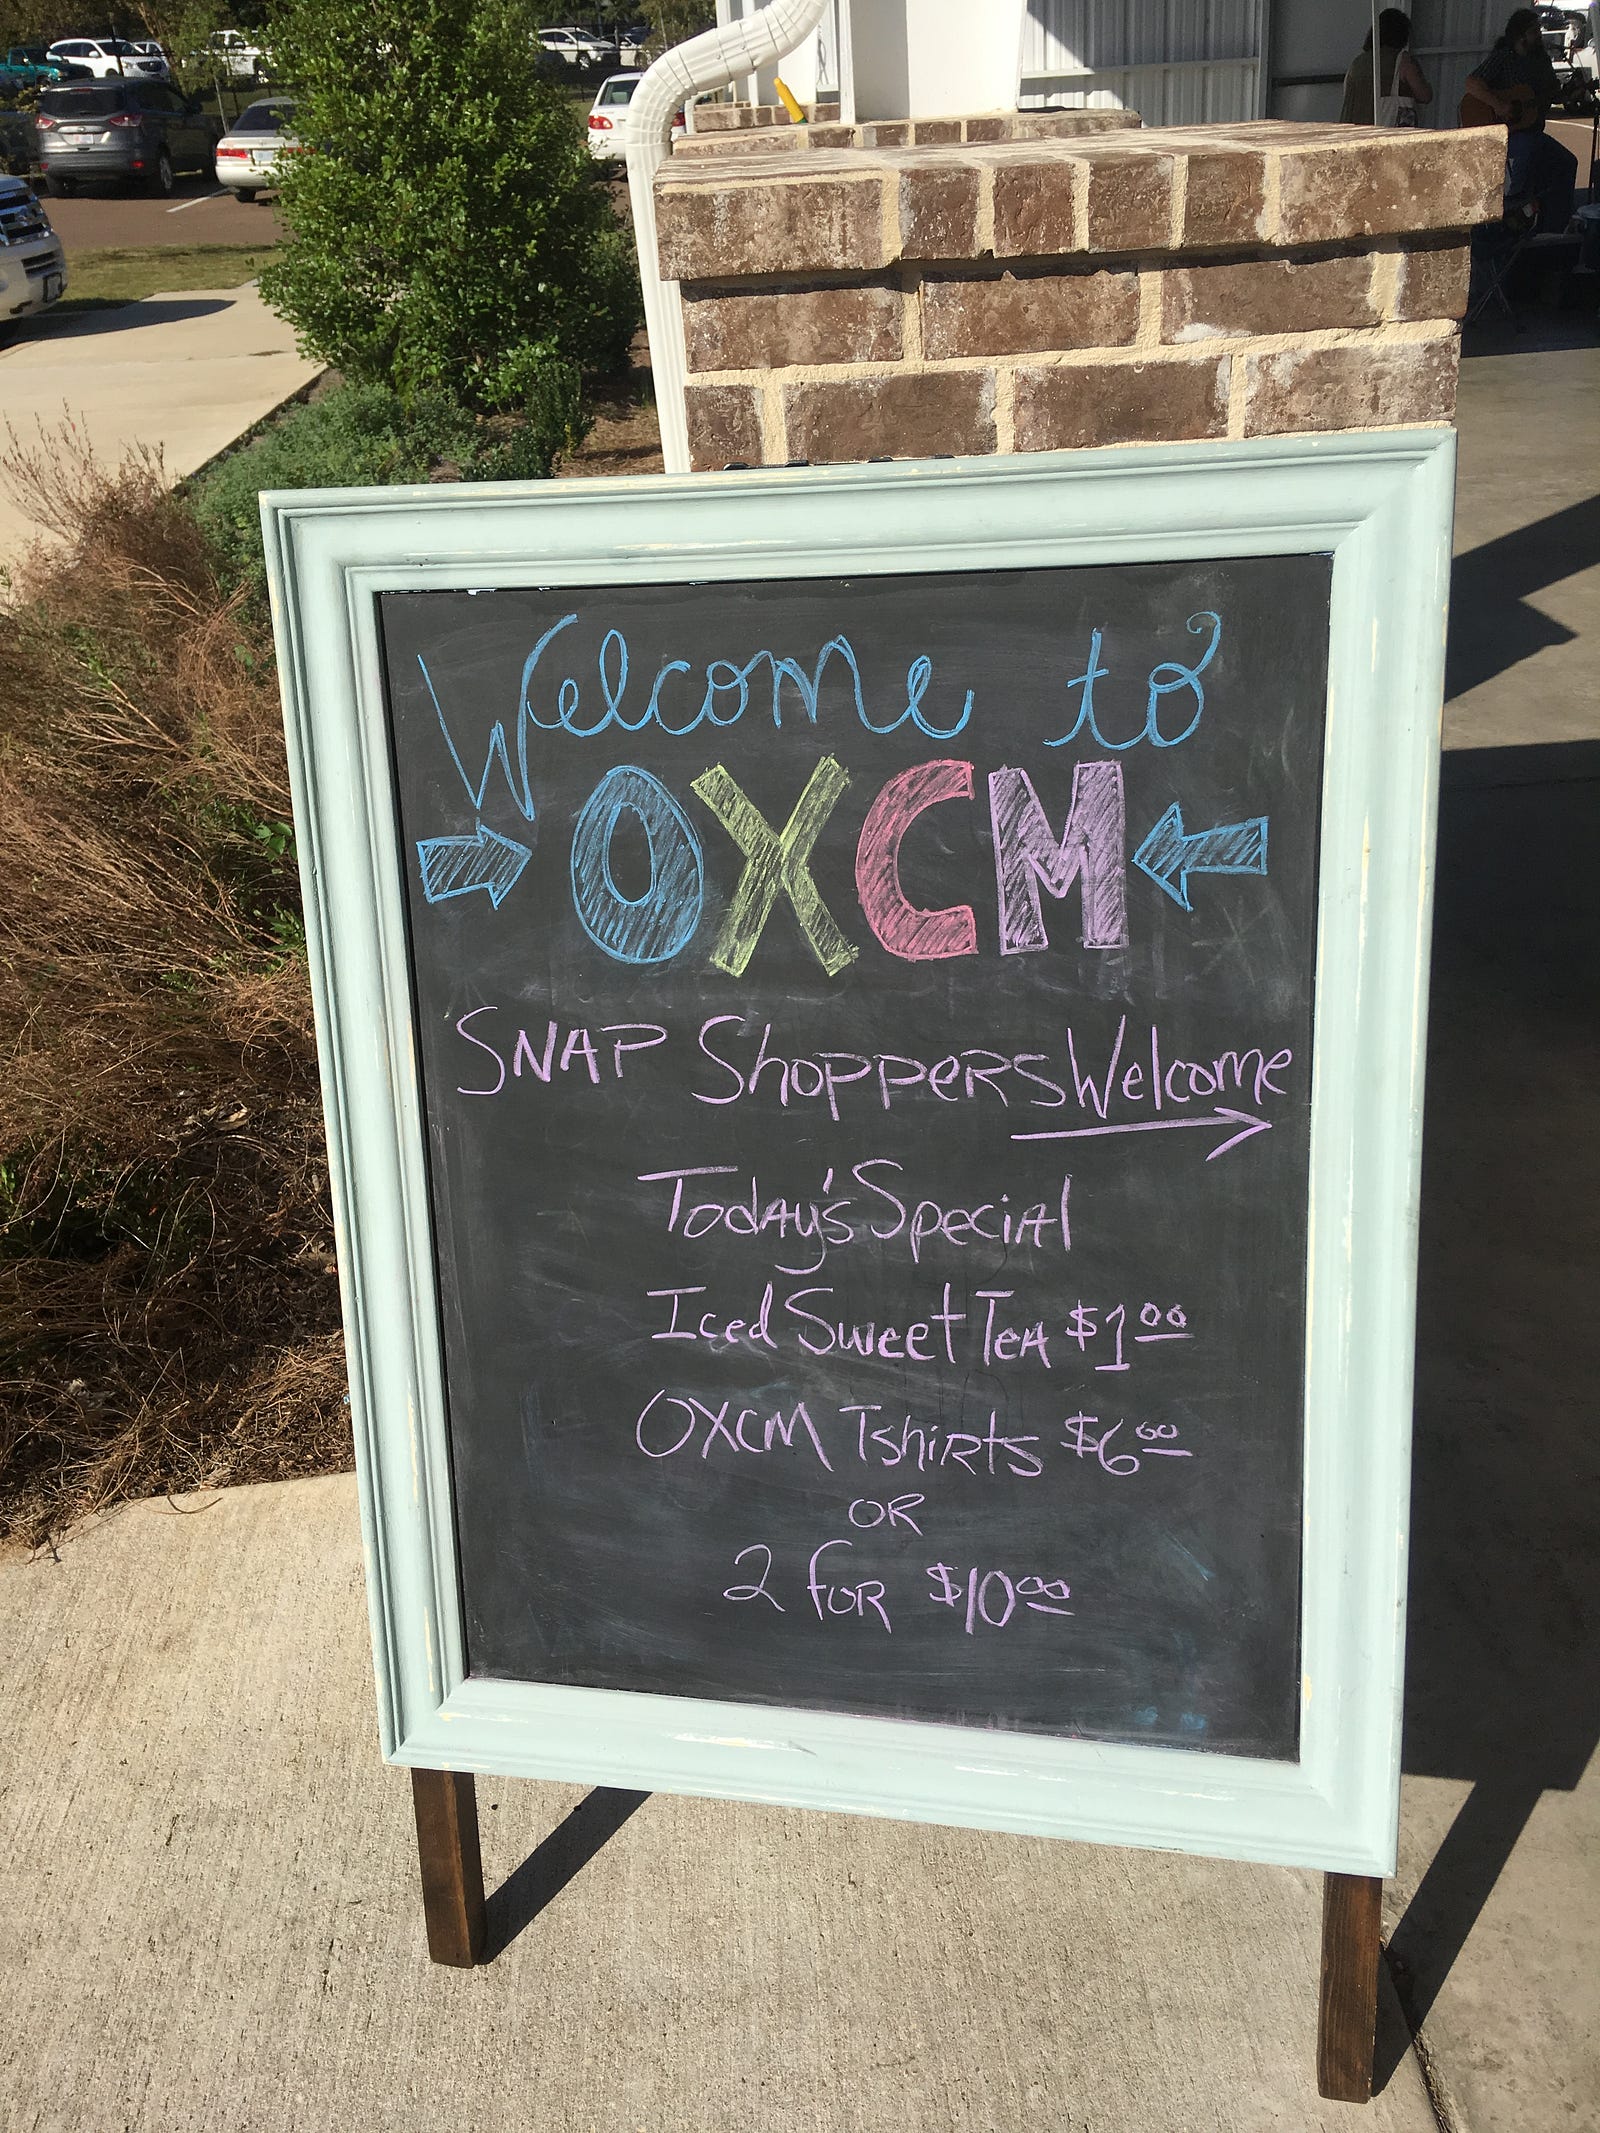 Welcome to
OXCM
SNAP Shoppers Welcome
Today's Special
Iced Sweet Tea $1.00
OXCM Tshirts $6.00
OR
2 for $10.00